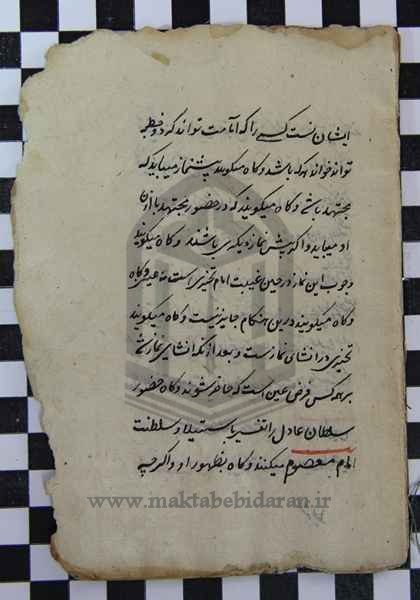 ایشان نسبت کسی را که امامت تواند که دو خطبه
تواند خواند هر که باشد و گاه میگویند پیشنماز میباید که
مجتهد باشد و گاه میگویند که در حضور مجتهد با اذن
او میباید و اگر پیش نماز دیگری باشد و گاه میگویند
وجوب این نماز در حین غیبت امام تخییری است نه عینی و گاه
و گاه میگویند درین هنکام جایز نیست و گاه میگویند
تخییری در انشای نماز ست و بعد از آنکه انشای نماز شد
بر همه کس فرض عین است که حاضر شوند و گاه حضور
سلطان عادل را تفسیر باستیلا و سلطنت
امام معصوم میکنند و گاه بظهور او و اگر چه
www.maktabebidaran.ir